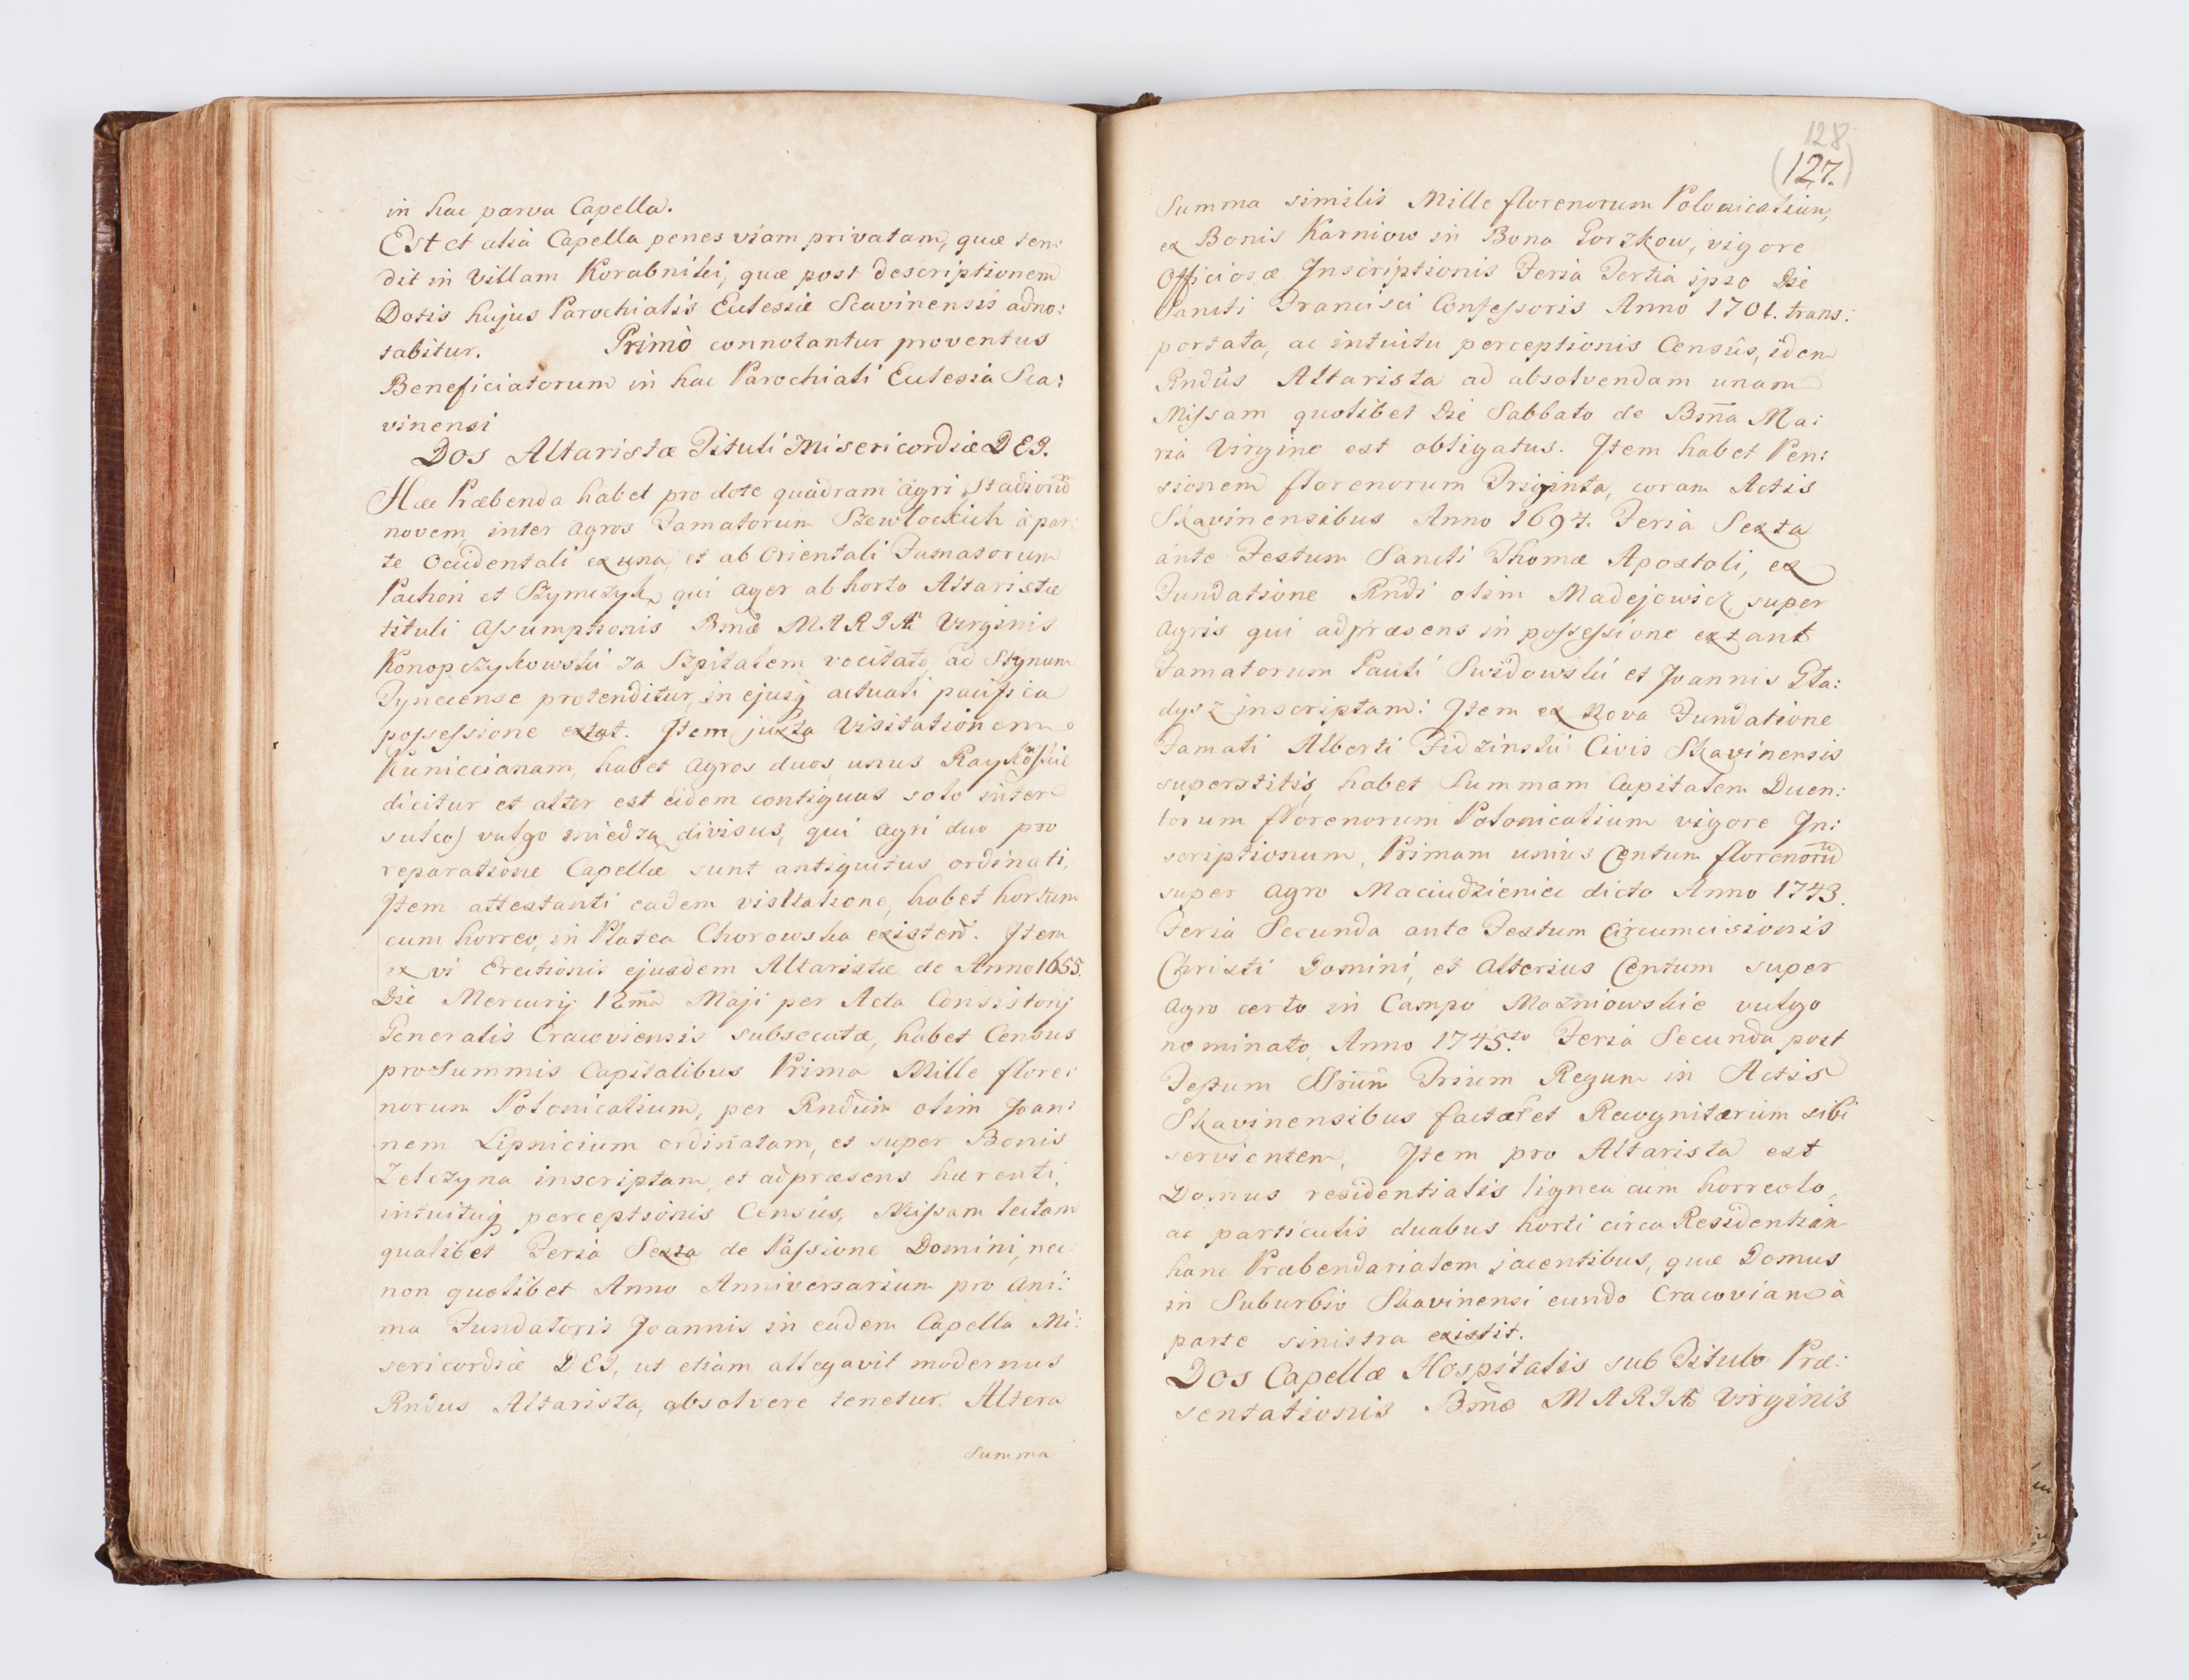 in hac parva Capella.
Est et alia Capella penes viam privatam, quæ ten:
dit in Villam Korabniki, quæ post descriptionem
Dotis hujus Parochialis Ecclesiæ Scavinensis adno:
tabitur. Primò connotantur proventus
Beneficiatorum in hac Parochiali Ecclesia Sca:
vinensi
Dos Altaristæ Tituli Misericordiæ DEI.
Hæc Præbenda habet pro dote quadram agri Stadiorū
novem, inter agros Famatorum Szewłockich à par
te Occidentali ex una, et ab Orientali Famatorum
Pachoń et Szymczyk, qui ager ab horto Altaristæ
tituli Assumptionis Bmæ MARIÆ Virginis
Konopczykowski za Szpitalem vocitato, ad Stgnum
Tynciense protenditur, in ejusq̃ actuali pacifica
possessione extat. Item juxta Visitationem
Kuniccianam, habet agros duos, unus Raykoskie
dicitur et alter est eidem contiguus solo inter
sulco, vulgo miedzą divisus, qui agri duo pro
reparatione Capellæ sunt antiquitus ordinati,
Item attestanti eadem visitatione, habet hortum
cum horreo, in Platea Chorowska existen̄. Item
ex vi Erectionis ejusdem Altaristæ de Anno 1655.
Die Mercurij 12ma Maji per Acta Consistorij
Generalis Cracoviensis subsecutæ, habet Census
pro Summis Capitalibus Prima Mille flore:
norum Polonicalium, per Rndūm olim Joan:
nem Lipnicium ordinatam, et super Bonis
Zelczyna inscriptam, et adpræsens hærenti,
intuituq̃ perceptionis Censûs, Missam lectam
qualibet Feria Sexta de Passione Domini, nec
non quolibet Anno Anniversarium pro Ani:
ma Fundatoris Joannis in eadem Capella Mi:
sericordiæ DEI, ut etiam allegavit modernus
Rndus Altarista, absolvere tenetur. Altera
Summa
128
(127.)
Summa similis Mille florenorum Polonicalium,
ex Bonis Karniow in Bona Gorzkow, vigore
Officiosæ Inscriptionis Feria Tertia ipso Die
Sancti Francisci Confessoris Anno 1701. trans:
portata, ac intuitu perceptionis Censûs, idem
Rndūs Altarista ad absolvendam unam
Missam quolibet Die Sabbato de Bm̄a Ma:
ria Virgine est obligatus. Item habet Pen:
sionem florenorum Triginta, coram Actis
Skavinensibus Anno 1694. Feria Sexta
ante Festum Sancti Thomæ Apostoli, ex
Fundatione Rndi olim Madejowicz, super
agris qui adpræsens in possessione extant
Famatorum Pauli Swidowski et Joannis Gła:
dysz inscriptam: Item ex Nova Fundatione
Famati Alberti Fidzinski Civis Skavinensis
superstitis, habet Summam Capitalem Ducen:
torum florenorum Polonicalium vigore In:
scriptionum, Primam unius Centum florenorū
super agro Maciudzienice dicto Anno 1743.
Feria Secunda ante Festum Circumcisionis
Christi Domini, et alterius Centum super
agro certo in Campo Mazniowskie vulgo
nominato, Anno 1745.to Feria Secunda post
Festum SSrūm Trium Regum in Actis
Skavinensibus factar̄ et Recognitarum sibi
servientem. Item pro Altarista est
Domus residentialis lignea cum horreolo,
ac particulis duabus horti circa Residentiam
hanc Præbendarialem jacentibus, quæ Domus
in Suburbio Skavinensi eundo Cracoviam à
parte sinistra existit.
Dos Capellæ Hospitalis sub Titulo Præ:
sentationis Bm̄æ MARIÆ Virginis